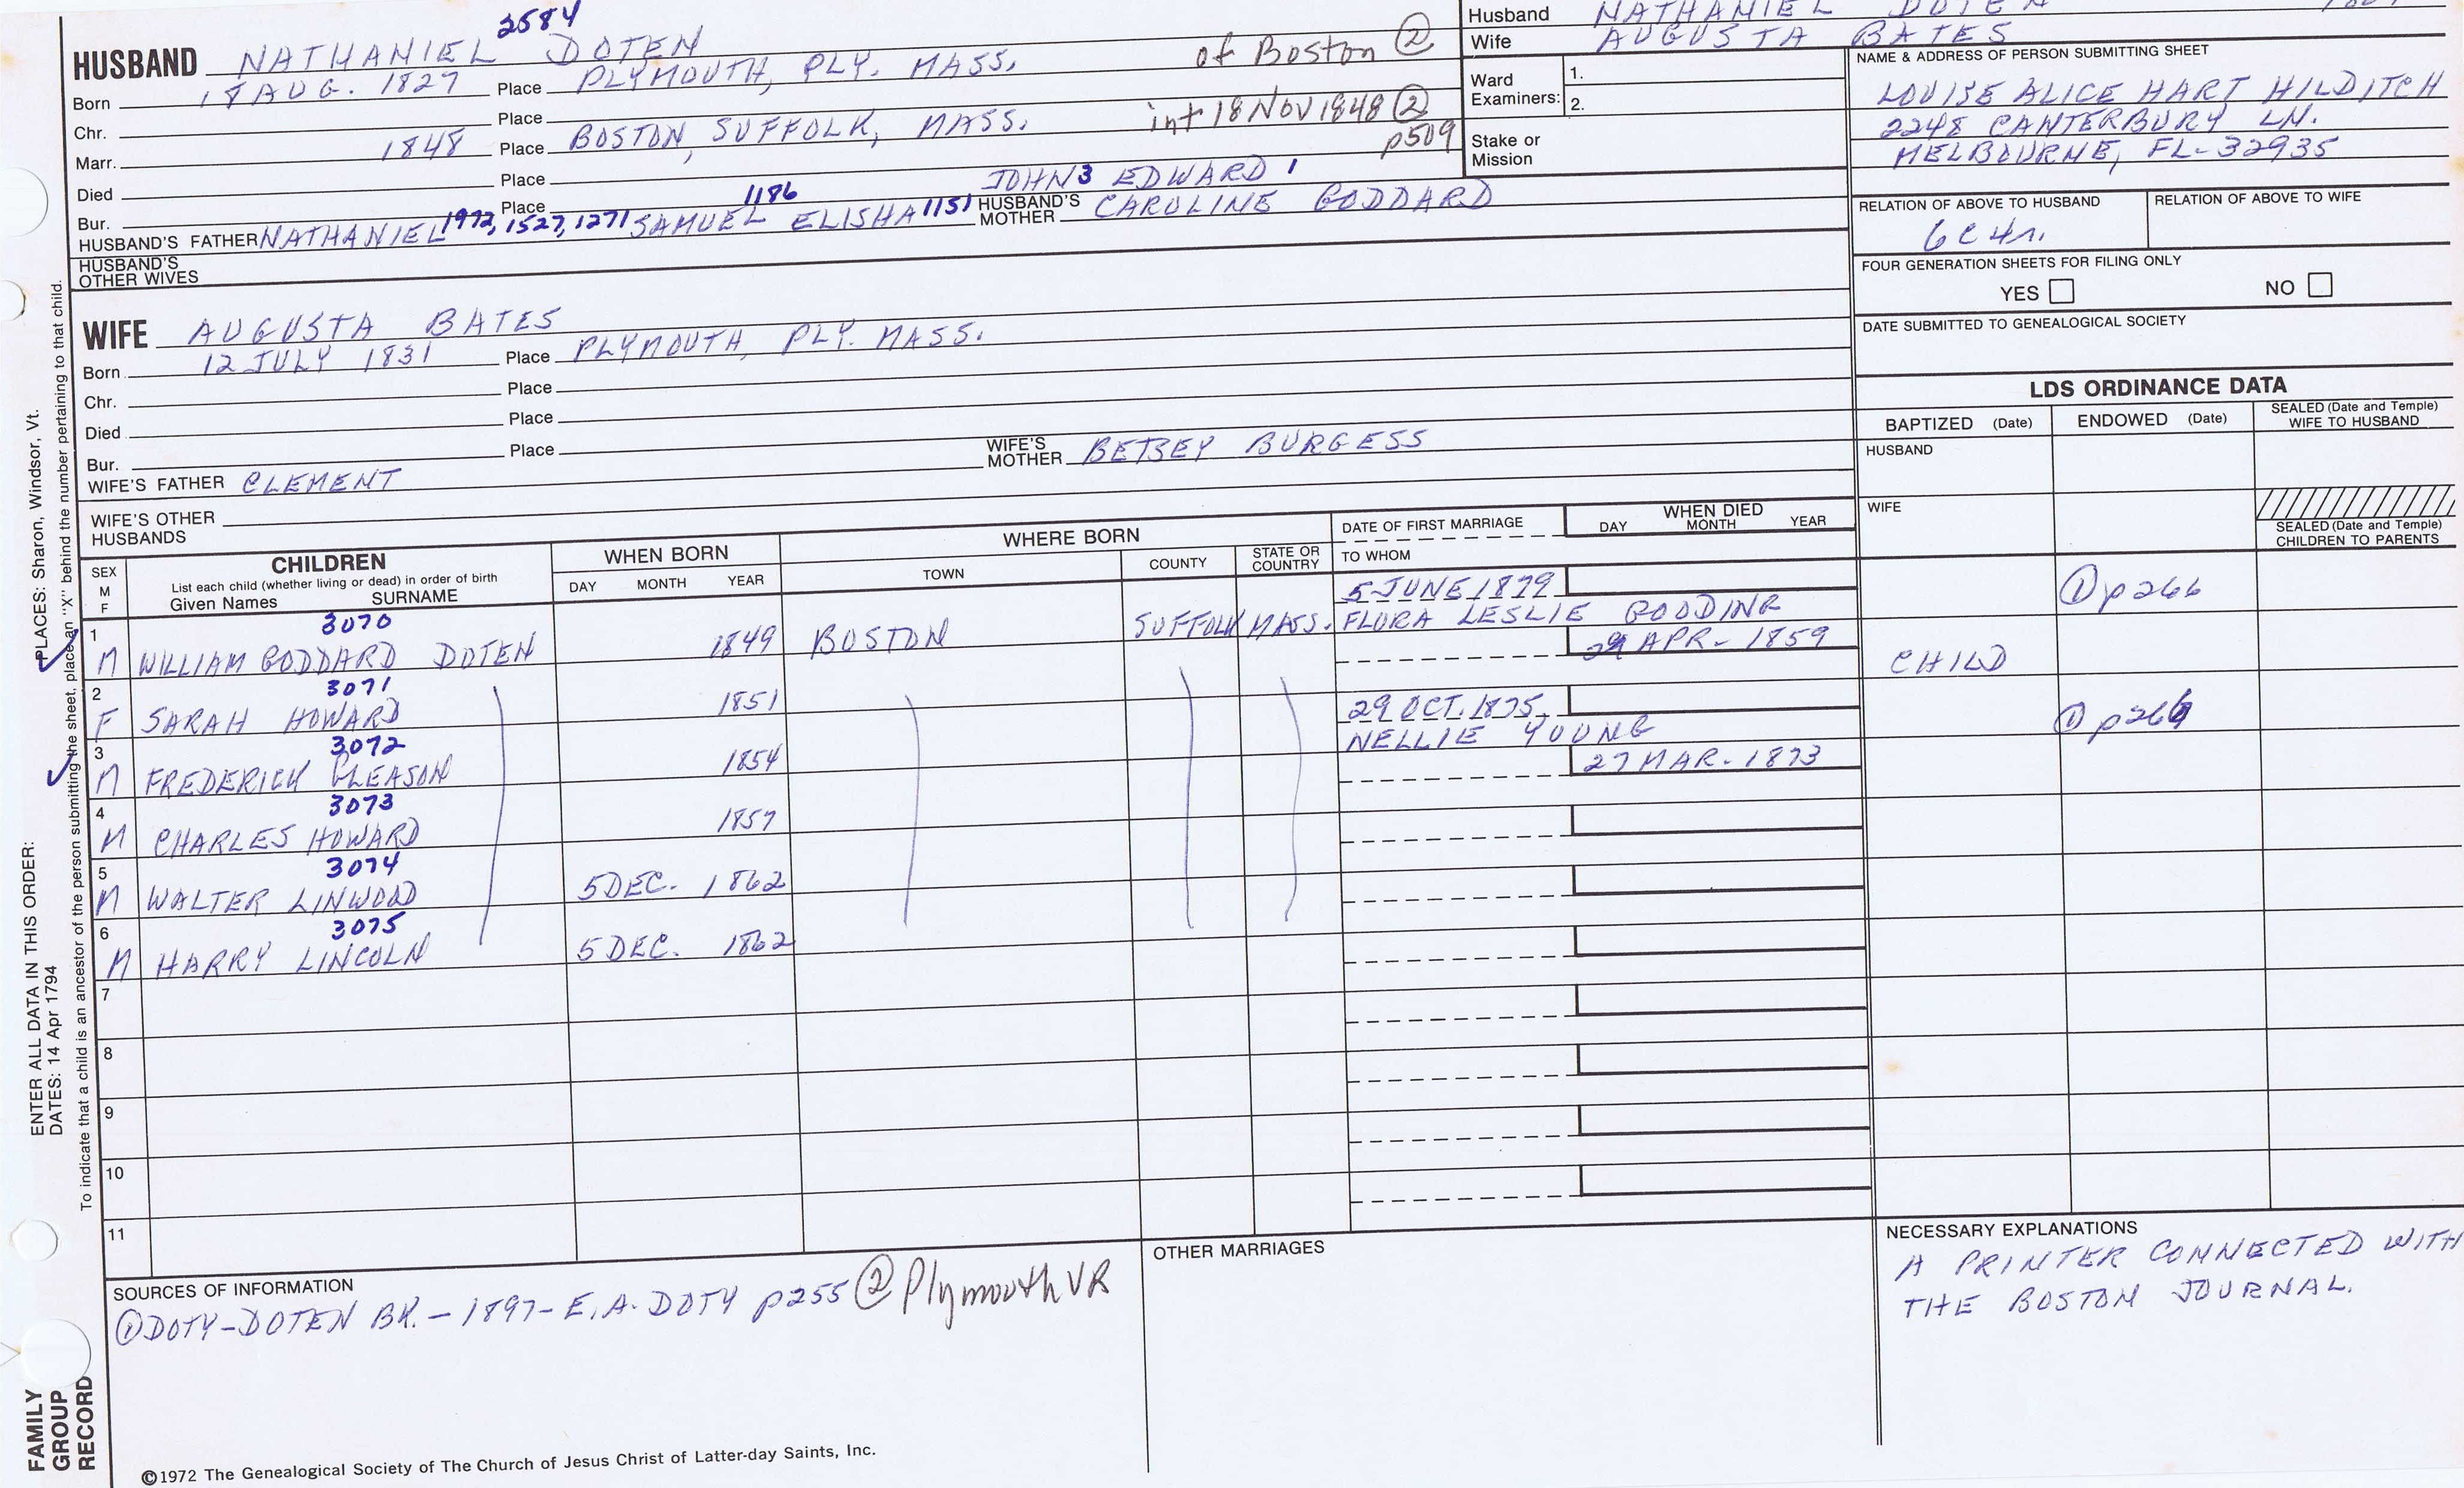 HUSBAND NATHANIEL 2584 DOTEN
Born 18 AUG. 1827 Place PLYMOUTH, PLY. MASS. of Boston ②
Chr. Place
Marr. 1848 Place BOSTON, SUFFOLK, MASS. int 18 NOV 1848 ② p509
Died Place
Bur. Place
HUSBAND'S FATHER NATHANIEL 1972, 1527, 1271 SAMUEL 1186 ELISHA 1151 JOHN 3 EDWARD 1 HUSBAND'S MOTHER CAROLINE GODDARD
HUSBAND'S OTHER WIVES
WIFE AUGUSTA BATES
Born 12 JULY 1831 Place PLYMOUTH, PLY. MASS.
Chr. Place
Died Place
Bur. Place
WIFE'S FATHER CLEMENT WIFE'S MOTHER BETSEY BURGESS
WIFE'S OTHER HUSBANDS
Husband NATHANIEL DOTEN
Wife AUGUSTA BATES
Ward Examiners: 1.
2.
Stake or Mission
NAME & ADDRESS OF PERSON SUBMITTING SHEET
LOUISE ALICE HART HILDITCH
2248 CANTERBURY LN.
MELBOURNE, FL-32935
RELATION OF ABOVE TO HUSBAND RELATION OF ABOVE TO WIFE
6C 4r.
FOUR GENERATION SHEETS FOR FILING ONLY
YES NO
DATE SUBMITTED TO GENEALOGICAL SOCIETY
LDS ORDINANCE DATA
BAPTIZED (Date) ENDOWED (Date) SEALED (Date and Temple) WIFE TO HUSBAND
HUSBAND
WIFE
SEALED (Date and Temple) CHILDREN TO PARENTS
SEX M F CHILDREN
List each child (whether living or dead) in order of birth
Given Names SURNAME
WHEN BORN
DAY MONTH YEAR
WHERE BORN
TOWN COUNTY STATE OR COUNTRY
DATE OF FIRST MARRIAGE
TO WHOM
WHEN DIED
DAY MONTH YEAR
1 3070 5 JUNE 1879 ① p266
M WILLIAM GODDARD DOTEN 1849 BOSTON SUFFOLK MASS. FLORA LESLIE
2 3071 APR- 1859
F SARAH HOWARD 1851 CHILD
3 3072 29 OCT. 1875 ①
M FREDERICK GLEASON 1854 NELLIE YOUNG
4 3073 27 MAR- 1873
M CHARLES HOWARD 1857
5 3074
M WALTER LINWOOD 5 DEC. 1862
6 3075
M HARRY LINCOLN 5 DEC. 1862
7
8
9
10
11
SOURCES OF INFORMATION
① DOTY-DOTEN BK. - 1897- E. A. DOTY p255 ② Plymouth VR
OTHER MARRIAGES
NECESSARY EXPLANATIONS
A PRINTER CONNECTED WITH
THE BOSTON JOURNAL.
©1972 The Genealogical Society of The Church of Jesus Christ of Latter-day Saints, Inc.
FAMILY
GROUP
RECORD
ENTER ALL DATA IN THIS ORDER:
DATES: 14 Apr 1794
PLACES: Sharon, Windsor, Vt.
To indicate that a child is an ancestor of the person submitting the sheet, place an "X" behind the number pertaining to that child.